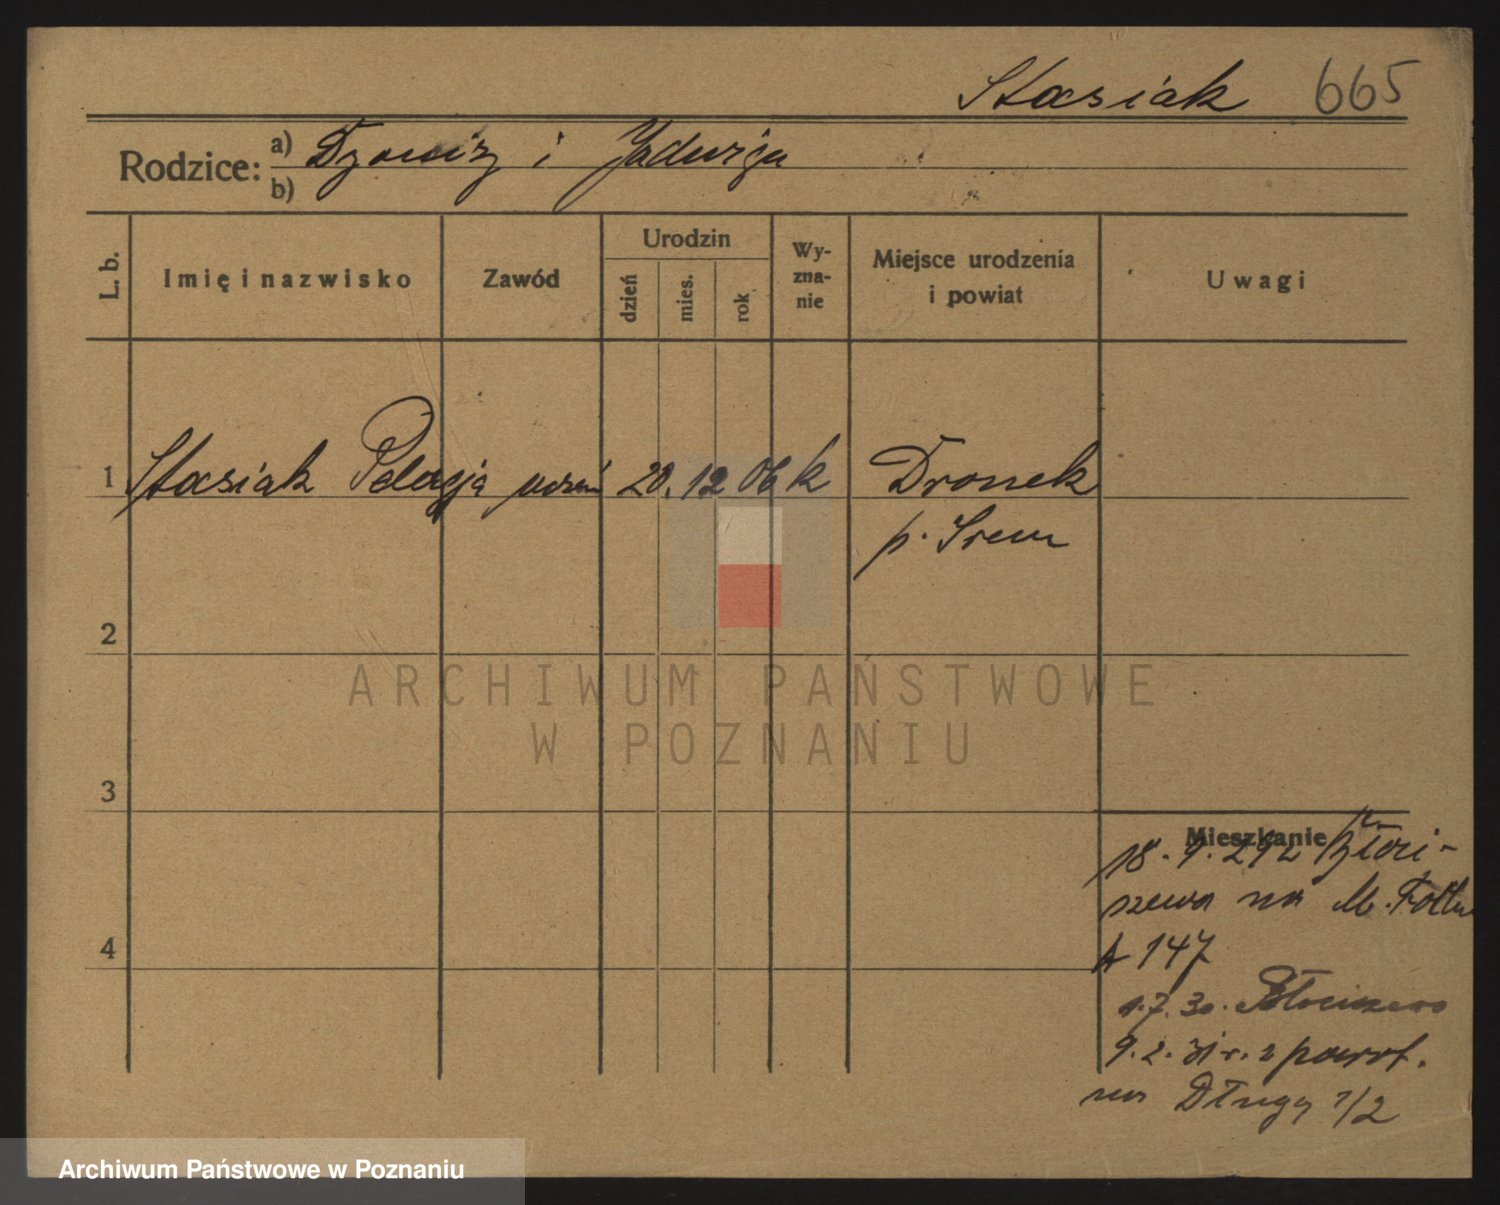 Stasiak 665
Rodzice: a) Dyonizy i Jadwiga
b)
L. b.
Imię i nazwisko
Zawód
Urodzin
dzień
mies.
rok
Wy-
zna-
nie
Miejsce urodzenia
i powiat
Uwagi
1 Stasiak Pelagja 20. 12 06 k Dronek
p. Srem
2
3
4
Mieszkanie
18. 9. 29 z
szewa na M.
A 147
1.7.30. Błociszewo
9. 2. 31 r. z powrt.
na Długą 1/2
ARCHIWUM PAŃSTWOWE
W POZNANIU
Archiwum Państwowe w Poznaniu